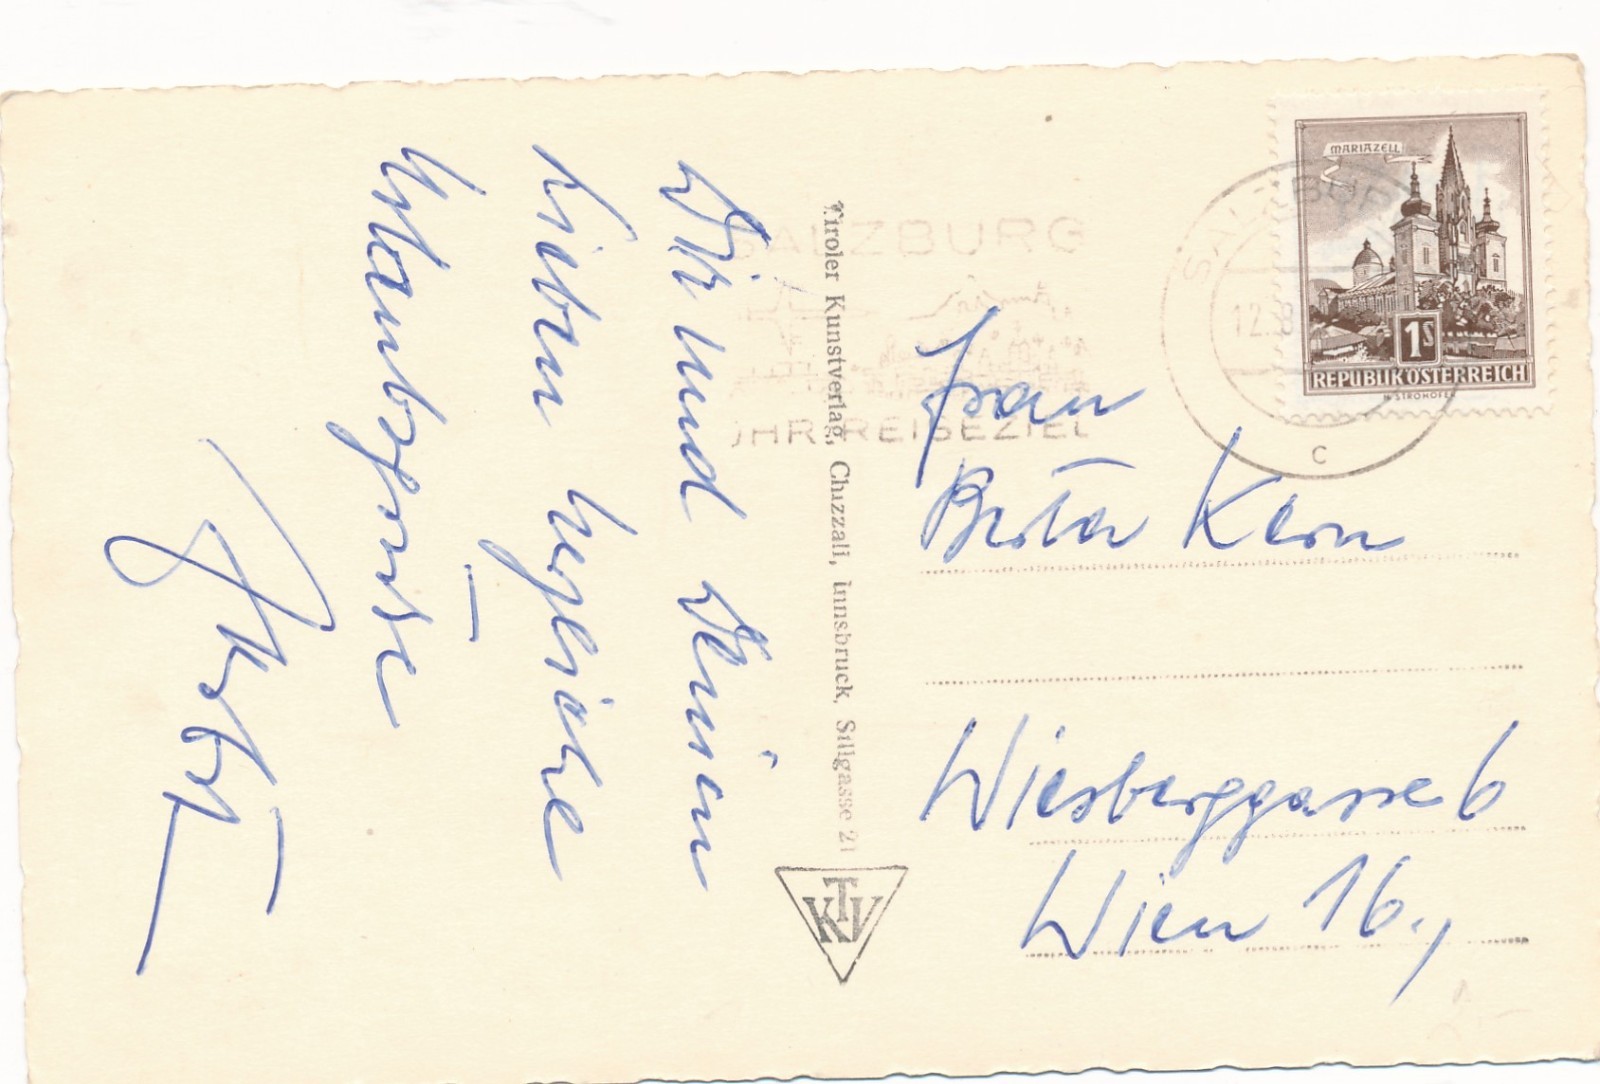 Dir und Deinen
Lieben herzliche
Urlaubsgrüße
Tiroler Kunstverlag, Chizzali, Innsbruck, Sillgasse 21
TKV
SALZBURG
IHR REISEZIEL
SALZBURG
12.8
c
MARIAZELL
1S
REPUBLIK ÖSTERREICH
H. STROHOFER
Frau
Berta Kern
Wiesberggasse 6
Wien 16.,